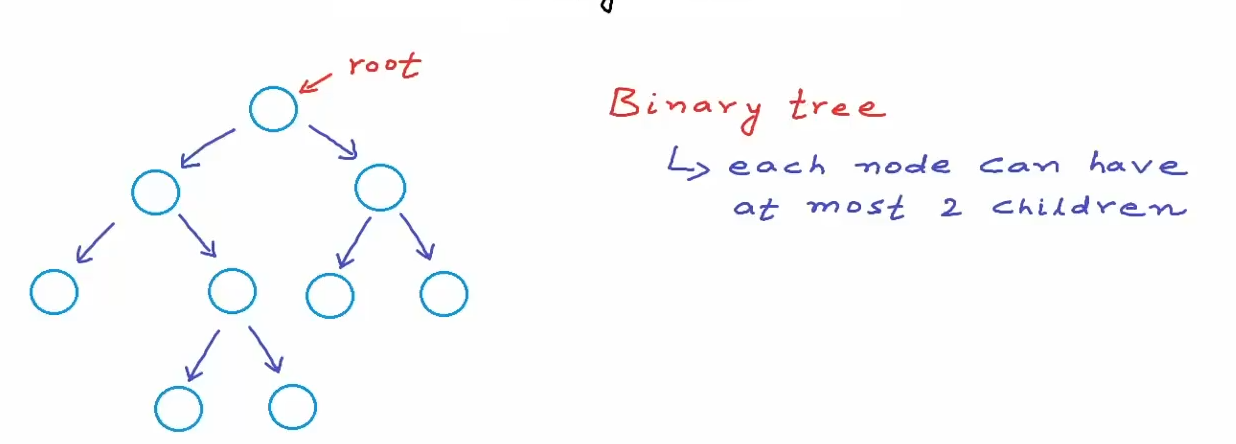 root
Binary tree
↳ each node can have
at most 2 children